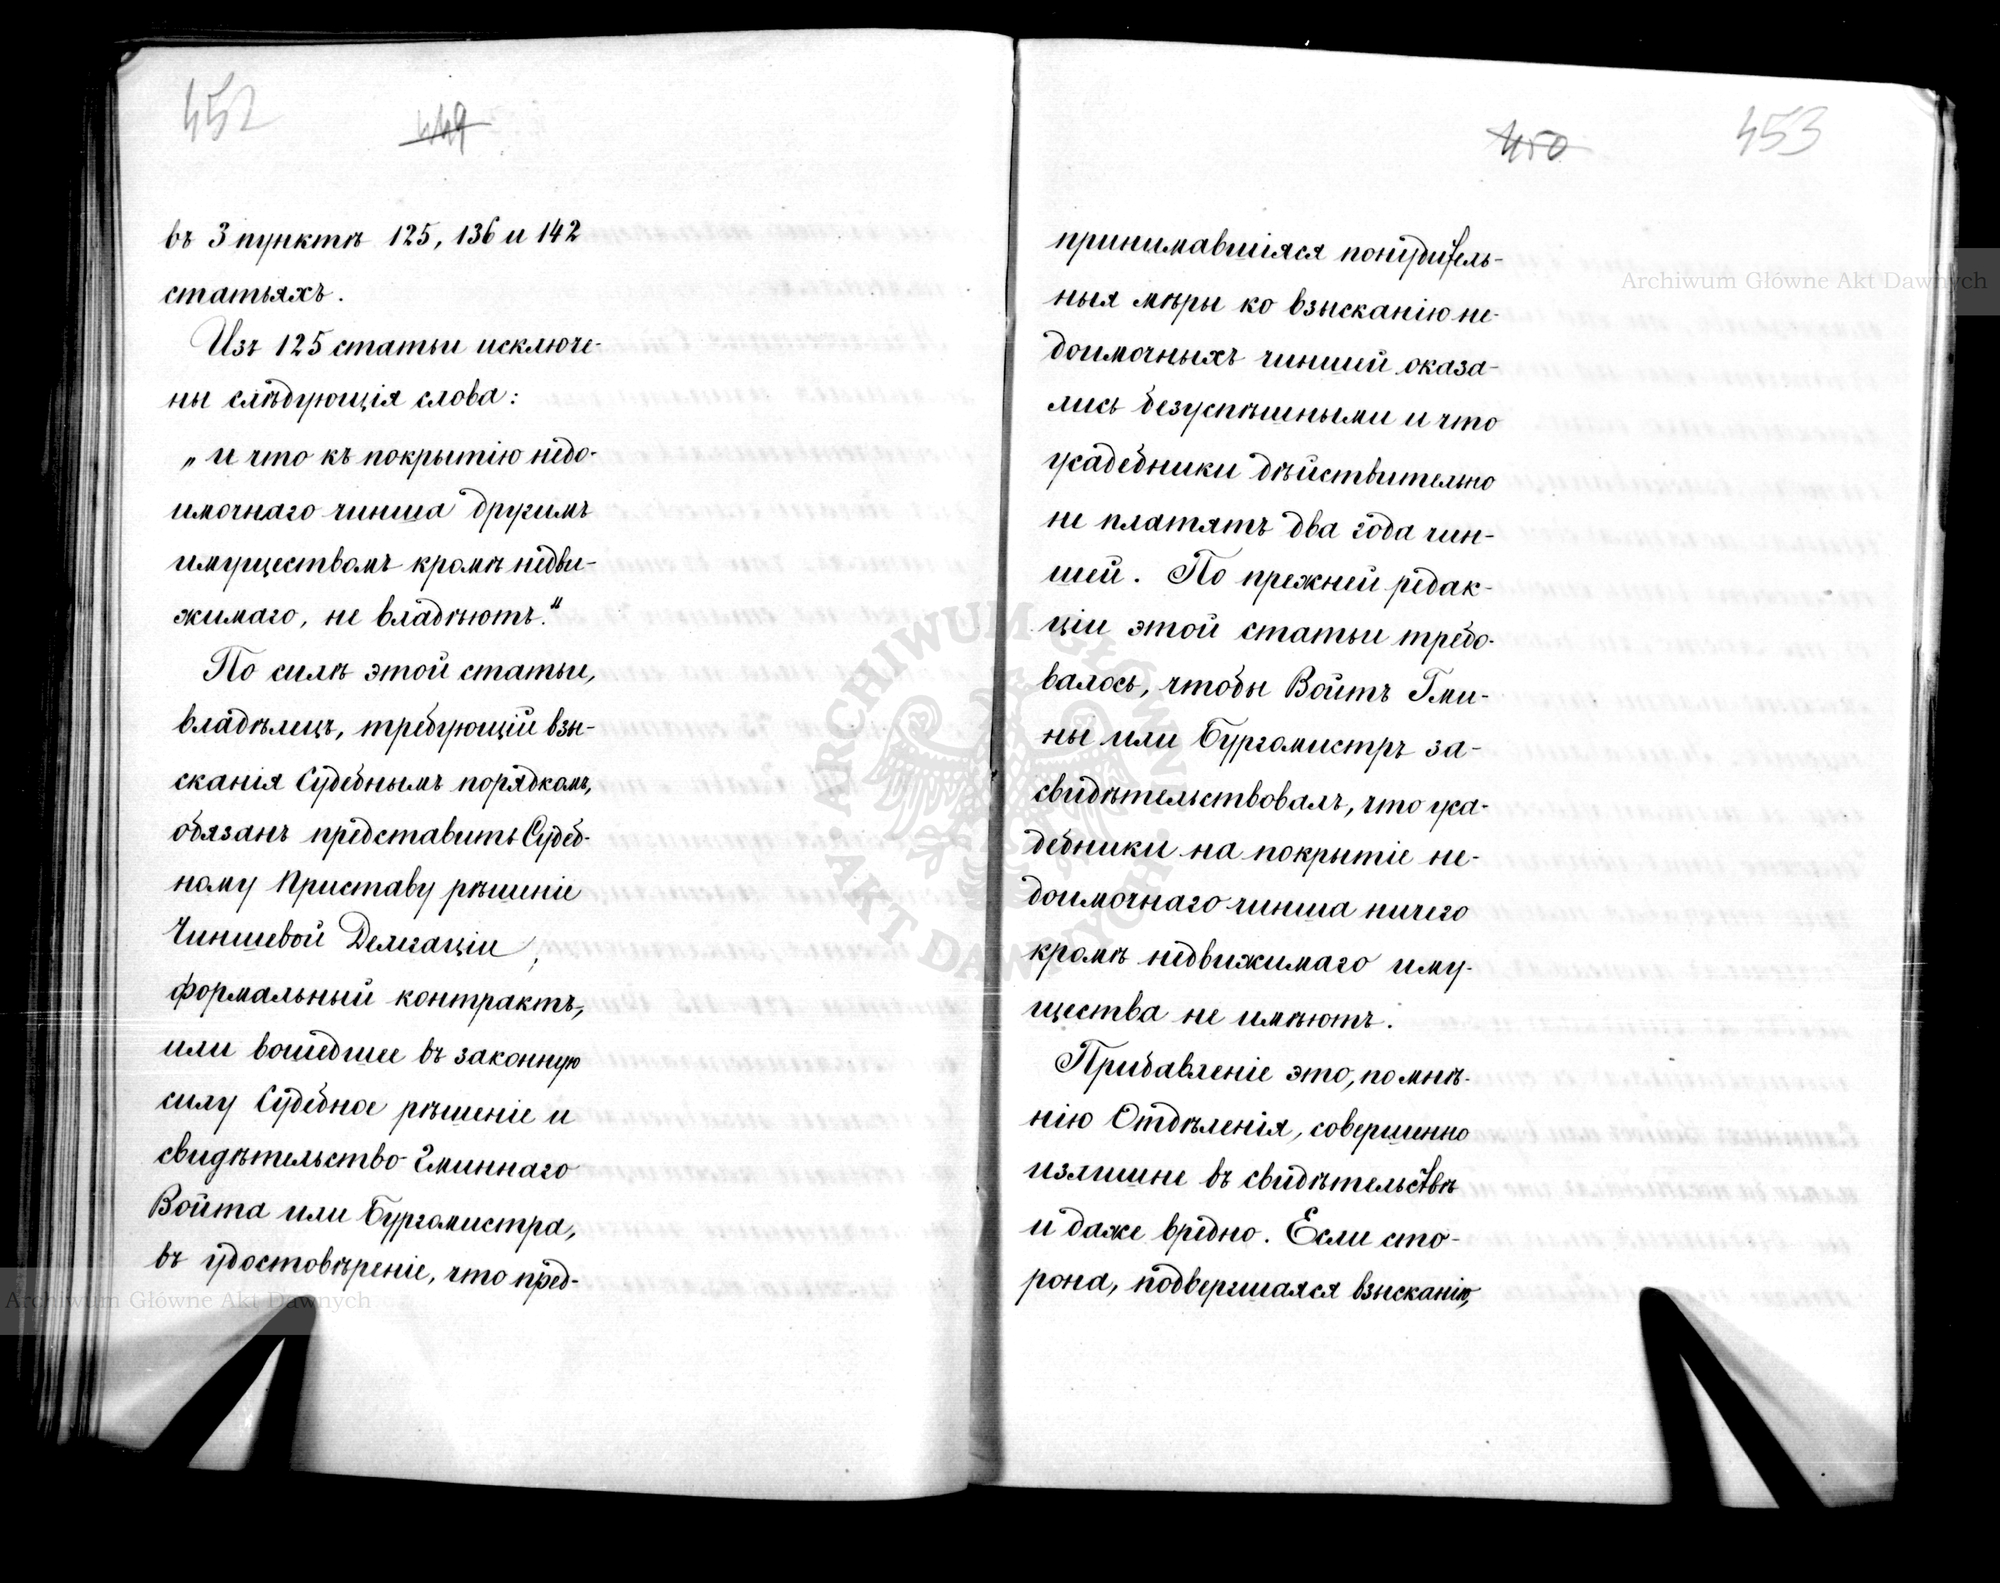 452
449
въ 3 пунктѣ 125, 136 и 142
статьяхъ.
Изъ 125 статьи исключе-
ны слѣдующія слова:
„и что къ покрытію недо-
имочнаго чинша другимъ
имуществомъ кромѣ недви-
жимаго, не владѣютъ."
По силѣ этой статьи,
владѣлецъ, требующій взы-
сканія Судебнымъ порядкомъ,
обязанъ представить Судеб-
ному Приставу рѣшеніе
Чиншевой Делегаціи,
формальный контрактъ,
или вошедшее въ законную
силу Судебное рѣшеніе и
свидѣтельство Гминнаго
Войта или Бургомистра,
въ удостовѣреніе, что пред-
450
453
принимавшіяся понудитель-
ныя мѣры ко взысканію не-
доимочныхъ чиншей оказа-
лись безуспѣшными и что
усадебники дѣйствительно
не платятъ два года чин-
шей. По прежней редак-
ціи этой статьи требо-
валось, чтобы Войтъ Гми-
ны или Бургомистръ за-
свидѣтельствовалъ, что уса-
дебники на покрытіе не-
доимочнаго чинша ничего
кромѣ недвижимаго иму-
щества не имѣютъ.
Прибавленіе это, по мнѣ-
нію Отдѣленія, совершенно
излишне въ свидѣтельствѣ
и даже вредно. Если сто-
рона, подвергшаяся взысканію,
Archiwum Główne Akt Dawnych
Archiwum Główne Akt Dawnych
ARCHIWUM GŁÓWNE
AKT DAWNYCH